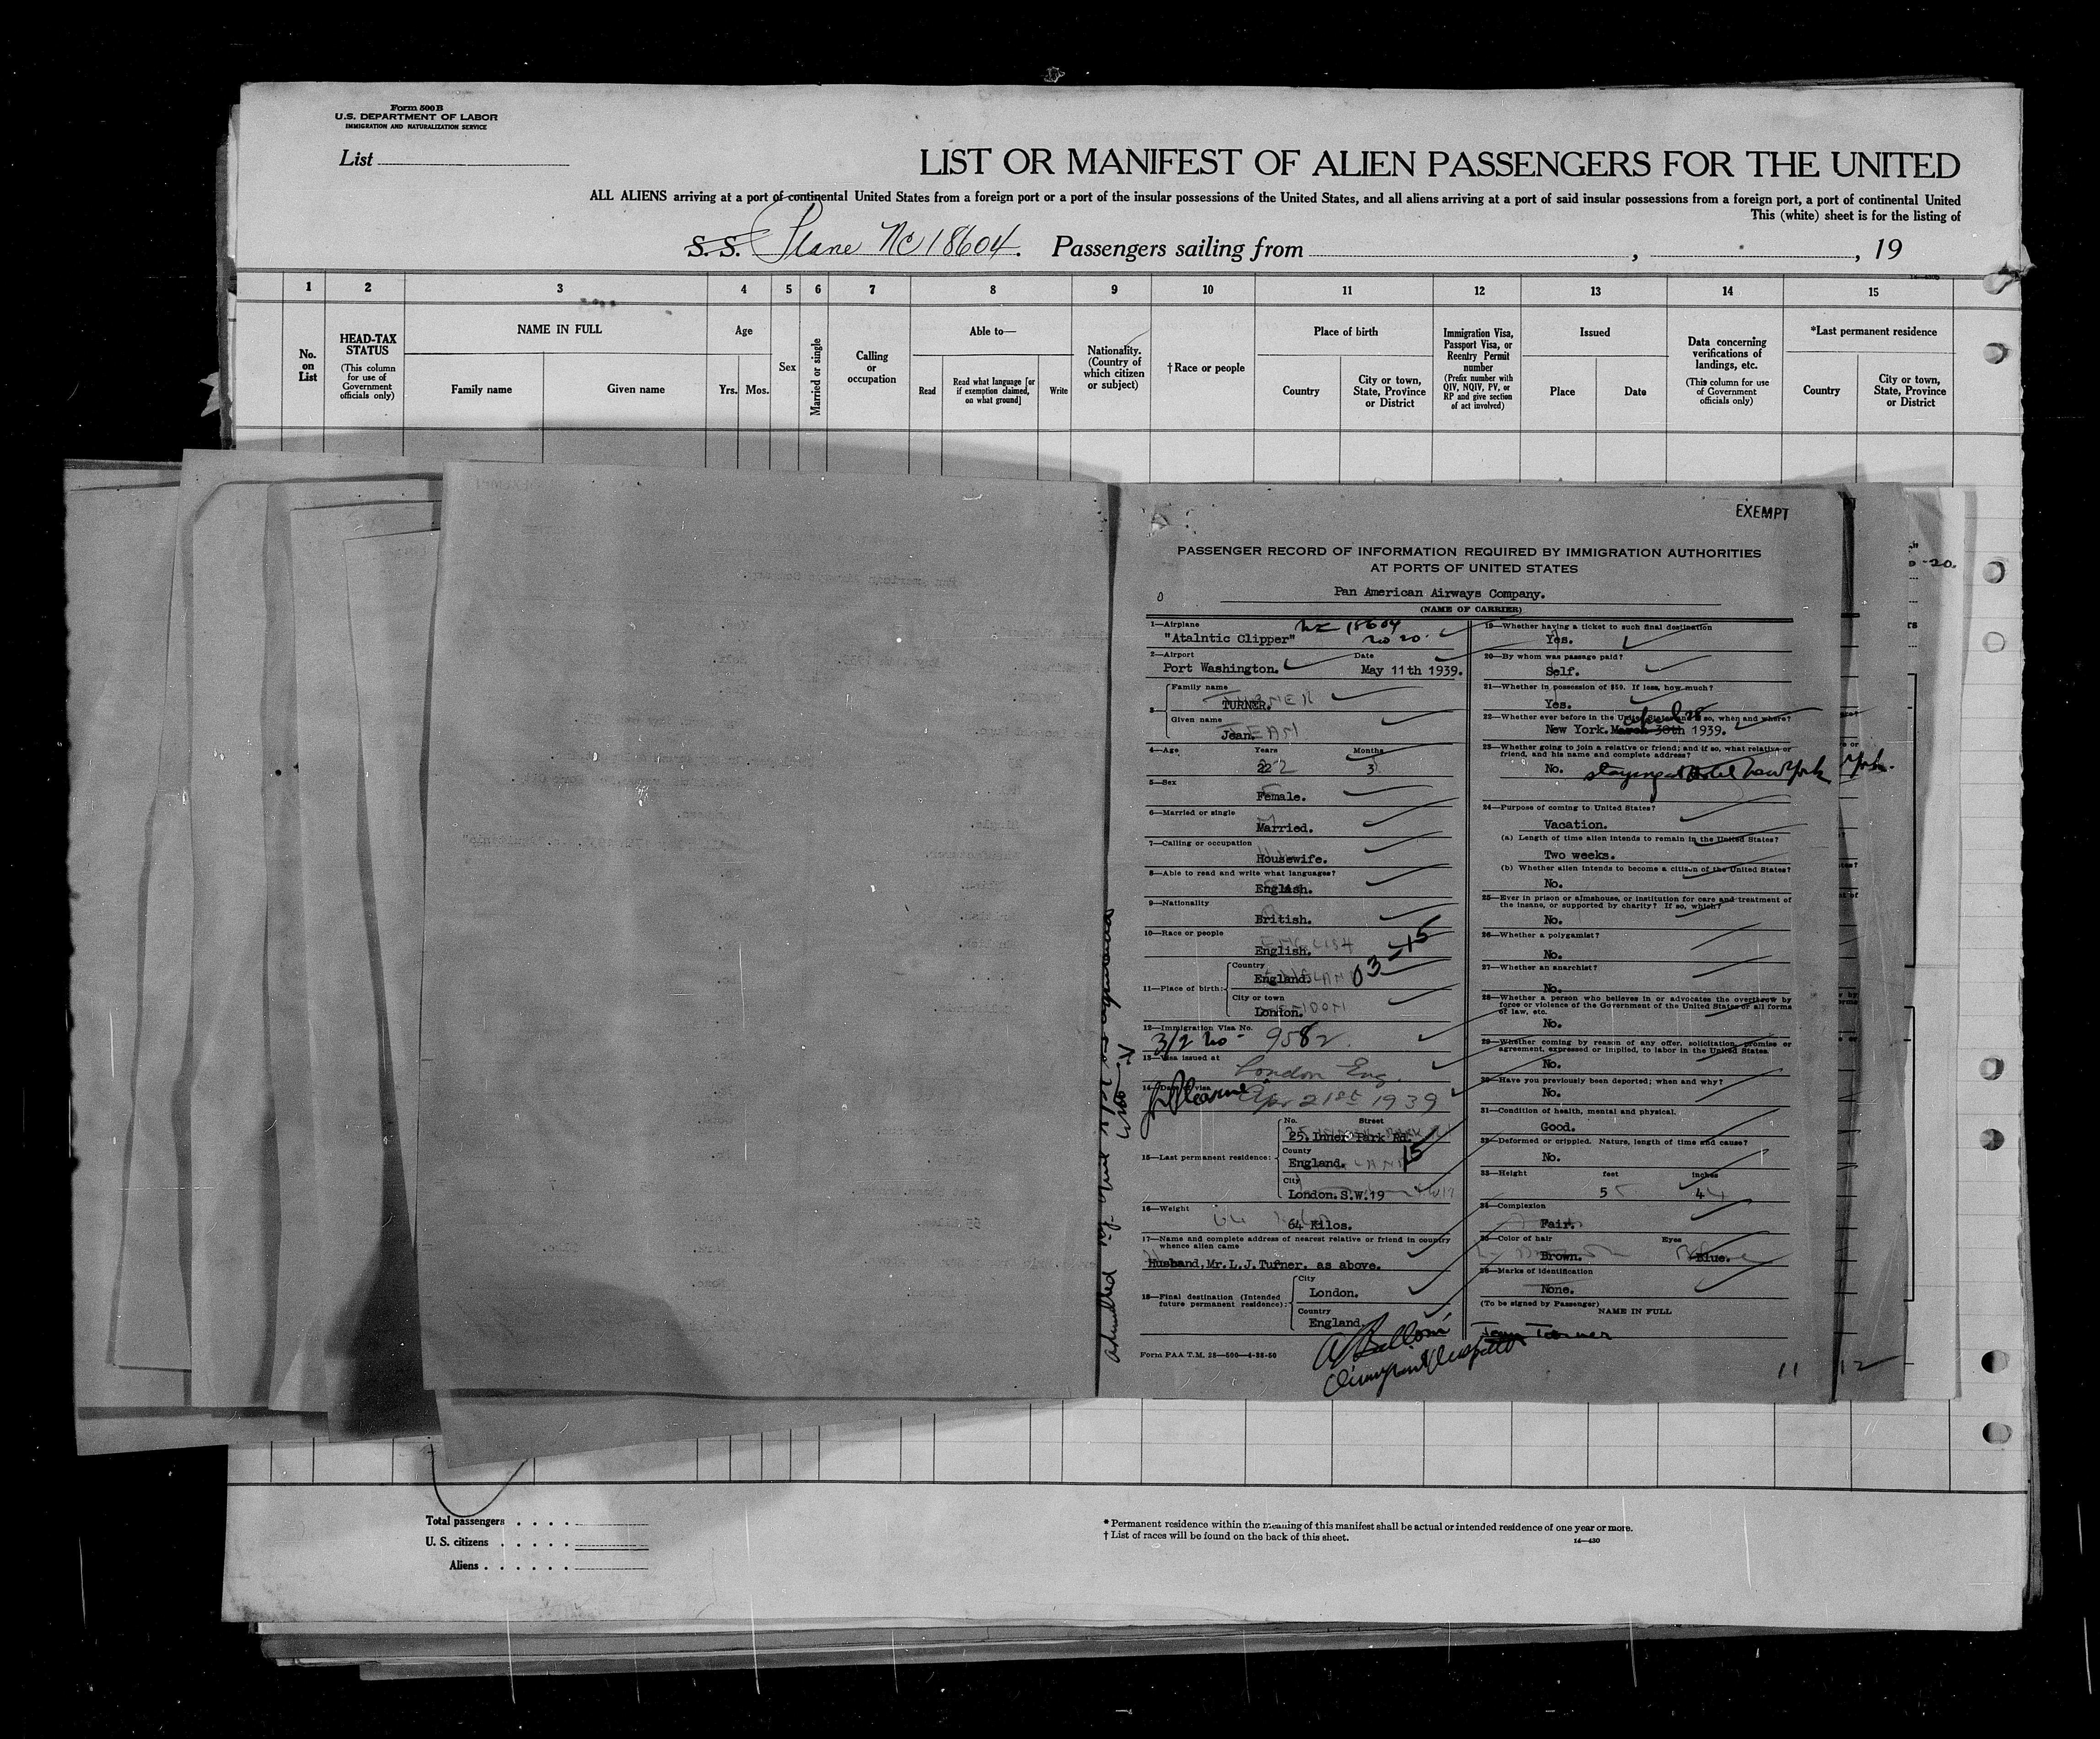 Form 500 B
U.S. DEPARTMENT OF LABOR
IMMIGRATION AND NATURALIZATION SERVICE
List
LIST OR MANIFEST OF ALIEN PASSENGERS FOR THE UNITED
ALL ALIENS arriving at a port of continental United States from a foreign port or a port of the insular possessions of the United States, and all aliens arriving at a port of said insular possessions from a foreign port, a port of continental United
This (white) sheet is for the listing of
S. S. Plane NC 18604. Passengers sailing from , , 19
1 2 3 4 5 6 7 8 9 10 11 12 13 14 15
No. on List
HEAD-TAX STATUS
(This column for use of Government officials only)
NAME IN FULL
Family name Given name
Age
Yrs. Mos.
Sex
Married or single
Calling or occupation
Able to—
Read
Read what language [or if exemption claimed, on what ground]
Write
Nationality. (Country of which citizen or subject)
†Race or people
Place of birth
Country
City or town, State, Province or District
Immigration Visa, Passport Visa, or Reentry Permit number
(Prefix number with QIV, NQIV, PV, or RP and give section of act involved)
Issued
Place Date
Data concerning verifications of landings, etc.
(This column for use of Government officials only)
*Last permanent residence
Country
City or town, State, Province or District
EXEMPT
PASSENGER RECORD OF INFORMATION REQUIRED BY IMMIGRATION AUTHORITIES
AT PORTS OF UNITED STATES
Pan American Airways Company.
(NAME OF CARRIER)
1—Airplane
"Atalntic Clipper" NC 18604
no 20.
2—Airport Date
Port Washington. May 11th 1939.
3
Family name
TURNER.
Given name
Jean.
4—Age Years Months
22 3
5—Sex
Female.
6—Married or single
Married.
7—Calling or occupation
Housewife.
8—Able to read and write what languages?
English.
9—Nationality
British.
10—Race or people
English.
03-15
11—Place of birth:
Country
England.
City or town
London.
12—Immigration Visa No.
3/2 no- 9582.
13—Visa issued at
London Eng.
14—Date of visa
Apr 21st 1939
15—Last permanent residence:
No. Street
25. Inner Park Rd.
County
England. 15
City
London. S.W.19
16—Weight
64 Kilos.
17—Name and complete address of nearest relative or friend in country
whence alien came
Husband, Mr. L. J. Turner. as above.
18—Final destination (Intended
future permanent residence):
City
London.
Country
England.
Form PAA T.M. 28—500—4-28-50
19—Whether having a ticket to such final destination
Yes.
20—By whom was passage paid?
Self.
21—Whether in possession of $50. If less, how much?
Yes.
22—Whether ever before in the United States; and if so, when and where?
New York. March 30th 1939.
April 28
23—Whether going to join a relative or friend; and if so, what relative or
friend, and his name and complete address?
No. staying at Hotel New York
24—Purpose of coming to United States?
Vacation.
(a) Length of time alien intends to remain in the United States?
Two weeks.
(b) Whether alien intends to become a citizen of the United States?
No.
25—Ever in prison or almshouse, or institution for care and treatment of
the insane, or supported by charity? If so, which?
No.
26—Whether a polygamist?
No.
27—Whether an anarchist?
No.
28—Whether a person who believes in or advocates the overthrow by
force or violence of the Government of the United States or all forms
of law, etc.
No.
29—Whether coming by reason of any offer, solicitation, promise or
agreement, expressed or implied, to labor in the United States.
No.
30—Have you previously been deported; when and why?
No.
31—Condition of health, mental and physical.
Good.
32—Deformed or crippled. Nature, length of time and cause?
No.
33—Height feet inches
5 4
34—Complexion
Fair.
35—Color of hair Eyes
Brown. Blue.
36—Marks of identification
None.
(To be signed by Passenger)
NAME IN FULL
Jean Turner
11
12
Total passengers
U. S. citizens
Aliens
* Permanent residence within the meaning of this manifest shall be actual or intended residence of one year or more.
† List of races will be found on the back of this sheet.
14—430